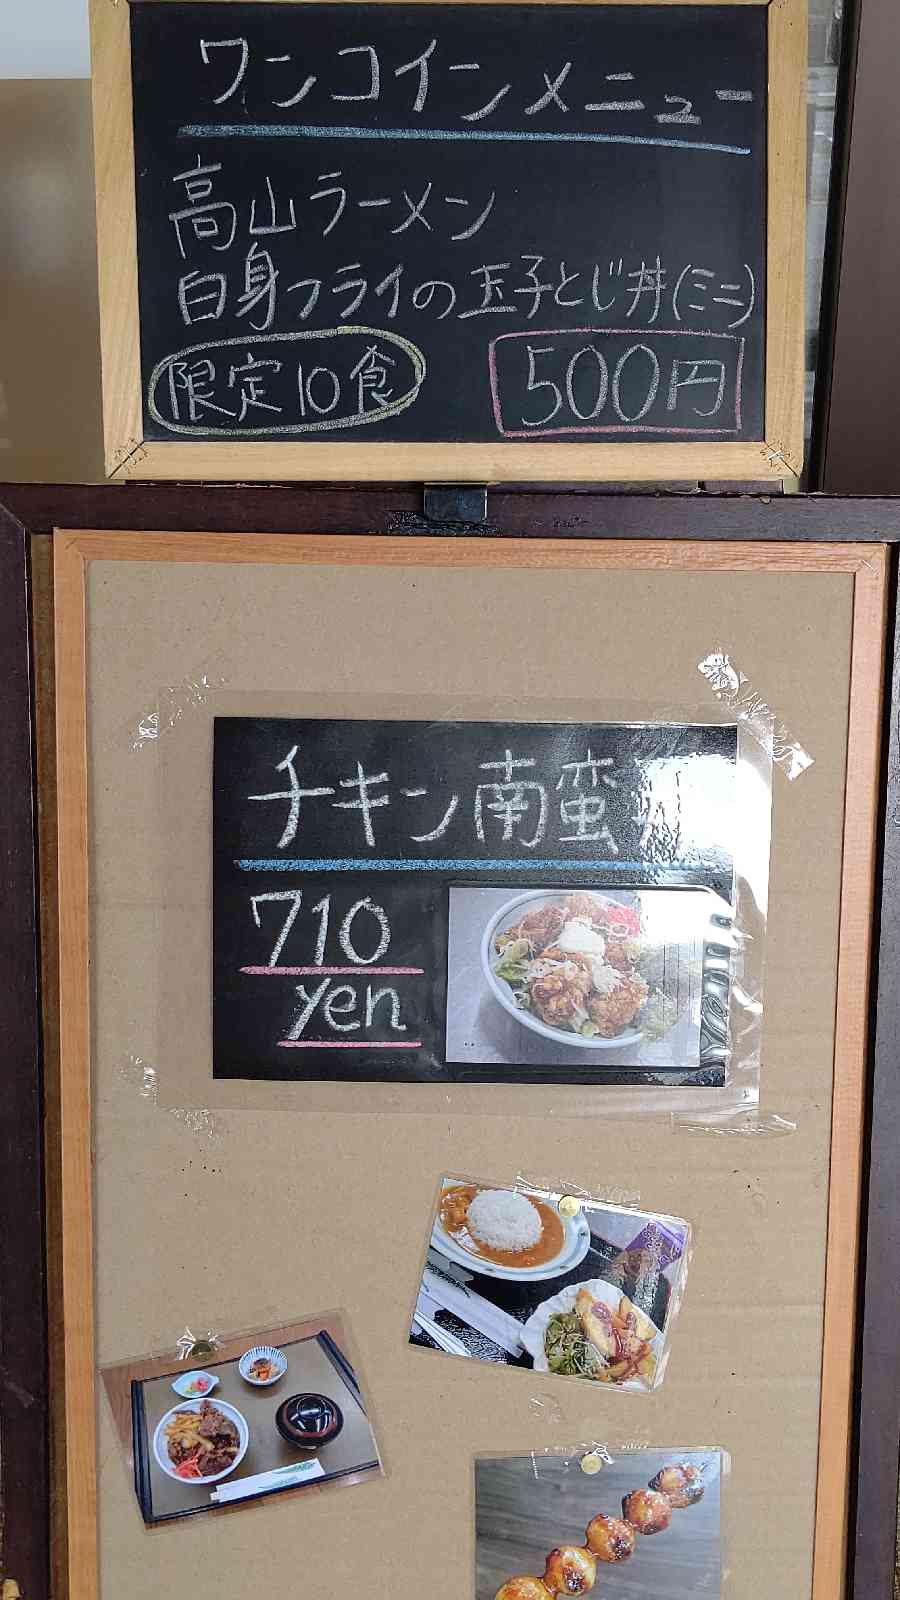 ワンコインメニュー
高山ラーメン
白身フライの玉子とじ丼(ミニ)
限定10食
500円
チキン南蛮
710
yen